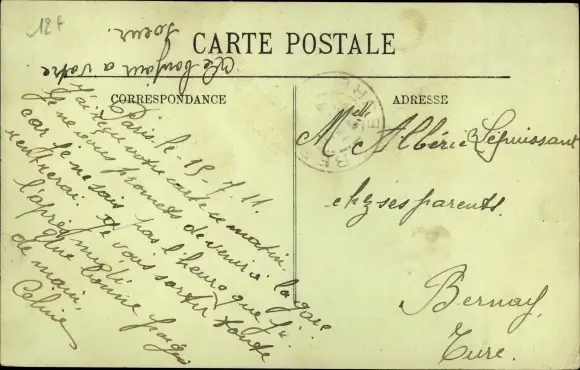 12 f
CARTE POSTALE
CORRESPONDANCE
ADRESSE
Le bonjour a votre
soeur.
Paris, le 15-7-11.
J'ai reçu votre carte ce matin.
Je ne vous promets de venir a la gare
car je ne sais pas l'heure que j'y
rentrerai. Je vais sortir toute
l'après midi.
Une bonne poignée
de main.
Celine
Melle Albérie Lepuissant
chz ses parents.
Bernay,
Eure.